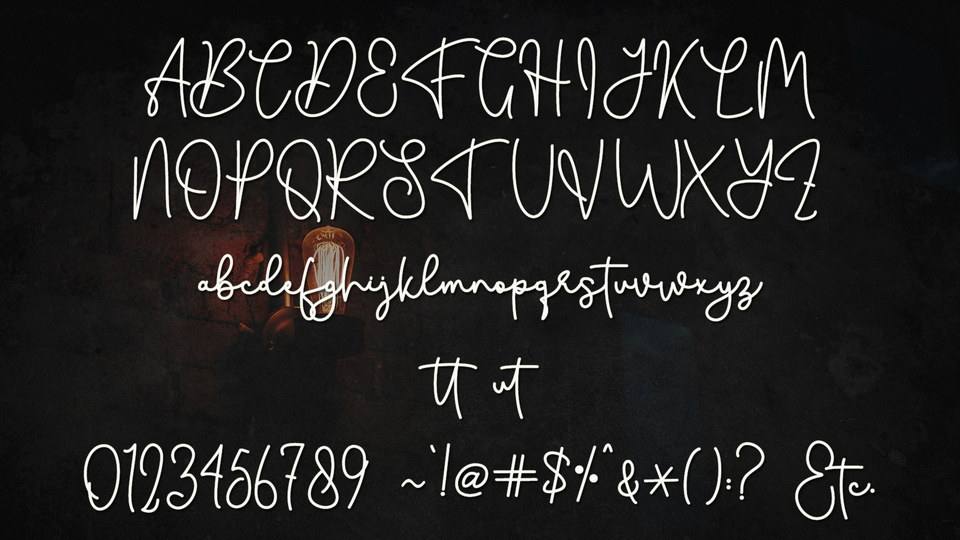 ABCDEFGHIJKLM
NOPQRSTUVWXYZ
abcdefghijklmnopqrstuvwxyz
tt ut
0123456789 ~`!@#$%^&*():? Etc.